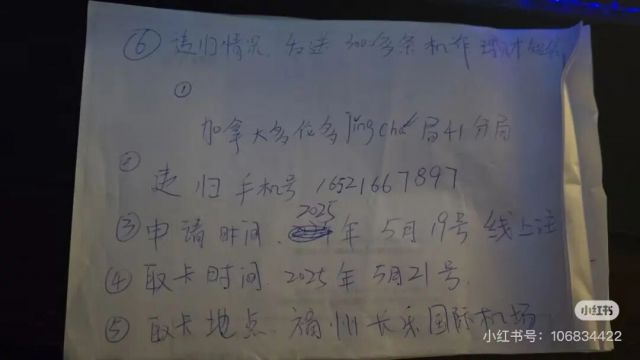 ⑥ 违归情况.发送300多条机作
①
加拿大多伦多Jingcha局41分局
② 违归手机号 16521667897
2025
③ 申请时间. 年5月19号 线上注
④ 取卡时间.2025年5月21号.
⑤ 取卡地点.福州长乐国际机场
小红书
小红书号:106834422